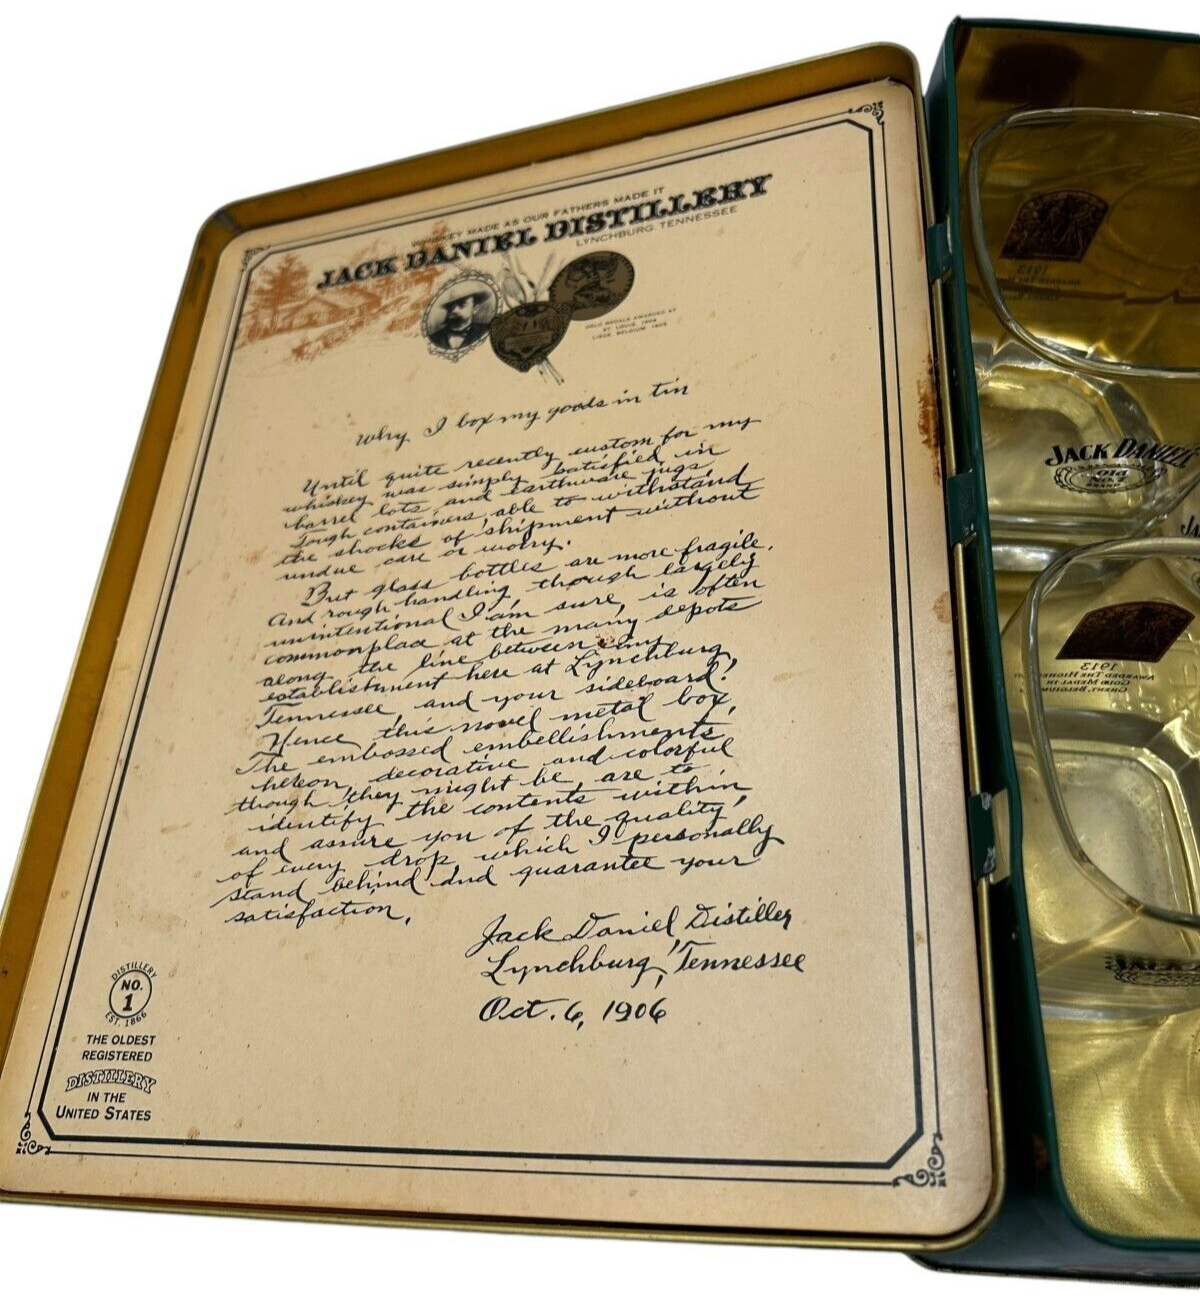 WHISKEY MADE AS OUR FATHERS MADE IT
JACK DANIEL DISTILLERY
LYNCHBURG, TENNESSEE
GOLD MEDALS AWARDED AT
ST. LOUIS, 1904
LIEGE, BELGIUM, 1905
Why I box my goods in tin
Until quite recently custom for my
whiskey was simply satisfied in
barrel lots and earthware jugs
Tough containers able to withstand
the shocks of shipment without
undue care or worry.
But glass bottles are more fragile.
And rough handling though largely
unintentional I am sure, is often
commonplace at the many depots
along the line between my
establishment here at Lynchburg,
Tennessee, and your sideboard!
Hence, this novel metal box,
The embossed embellishments
hereon, decorative and colorful
though they might be, are to
identify the contents within,
and assure you of the quality,
of every drop, which I personally
stand behind and guarantee your
satisfaction.
Jack Daniel Distiller
Lynchburg, Tennessee
Oct. 6, 1906
DISTILLERY
NO.
1
EST. 1866
THE OLDEST
REGISTERED
DISTILLERY
IN THE
UNITED STATES
1913
JACK DANIEL
OLD
NO. 7
BRAND
1913
AWARDED THE HIGHES
GOLD MEDAL IN
GHENT, BELGIUM